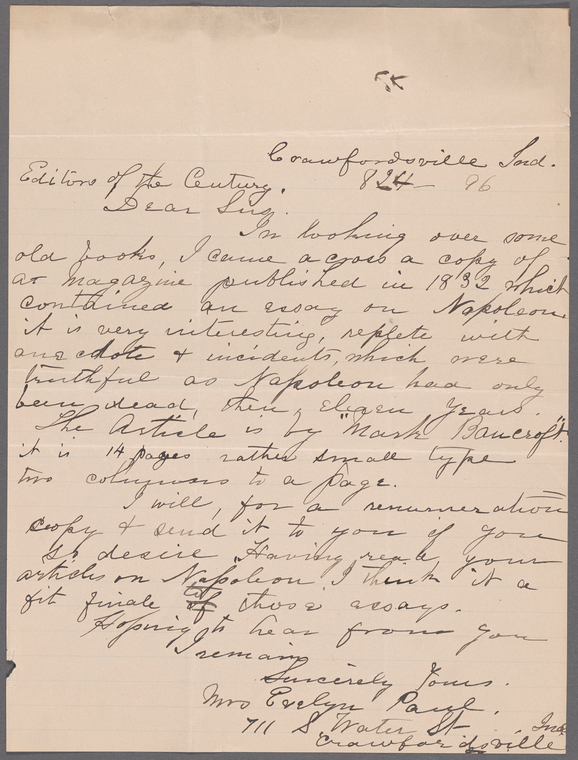 Crawfordsville Ind.
Editors of the Century. 824 - 96
Dear Sirs.
In looking over some
old books, I came across a copy of
a magazine published in 1832 which
contained an essay on Napoleon.
it is very interesting, replete with
anecdote & incidents, which were
truthful as Napoleon had only
been dead, then, eleven years.
The Article is by "Mark Bancroft".
it is 14 pages rather small type
two columns to a page.
I will, for a renumeration
copy & send it to you if you
so desire. Having read your
articles on Napoleon. I think it a
fit finale to those essays.
Hoping to hear from you
I remain
Sincerely Yours.
Mrs Evelyn Paul.
711 S Water St. Ind.
Crawfordsville